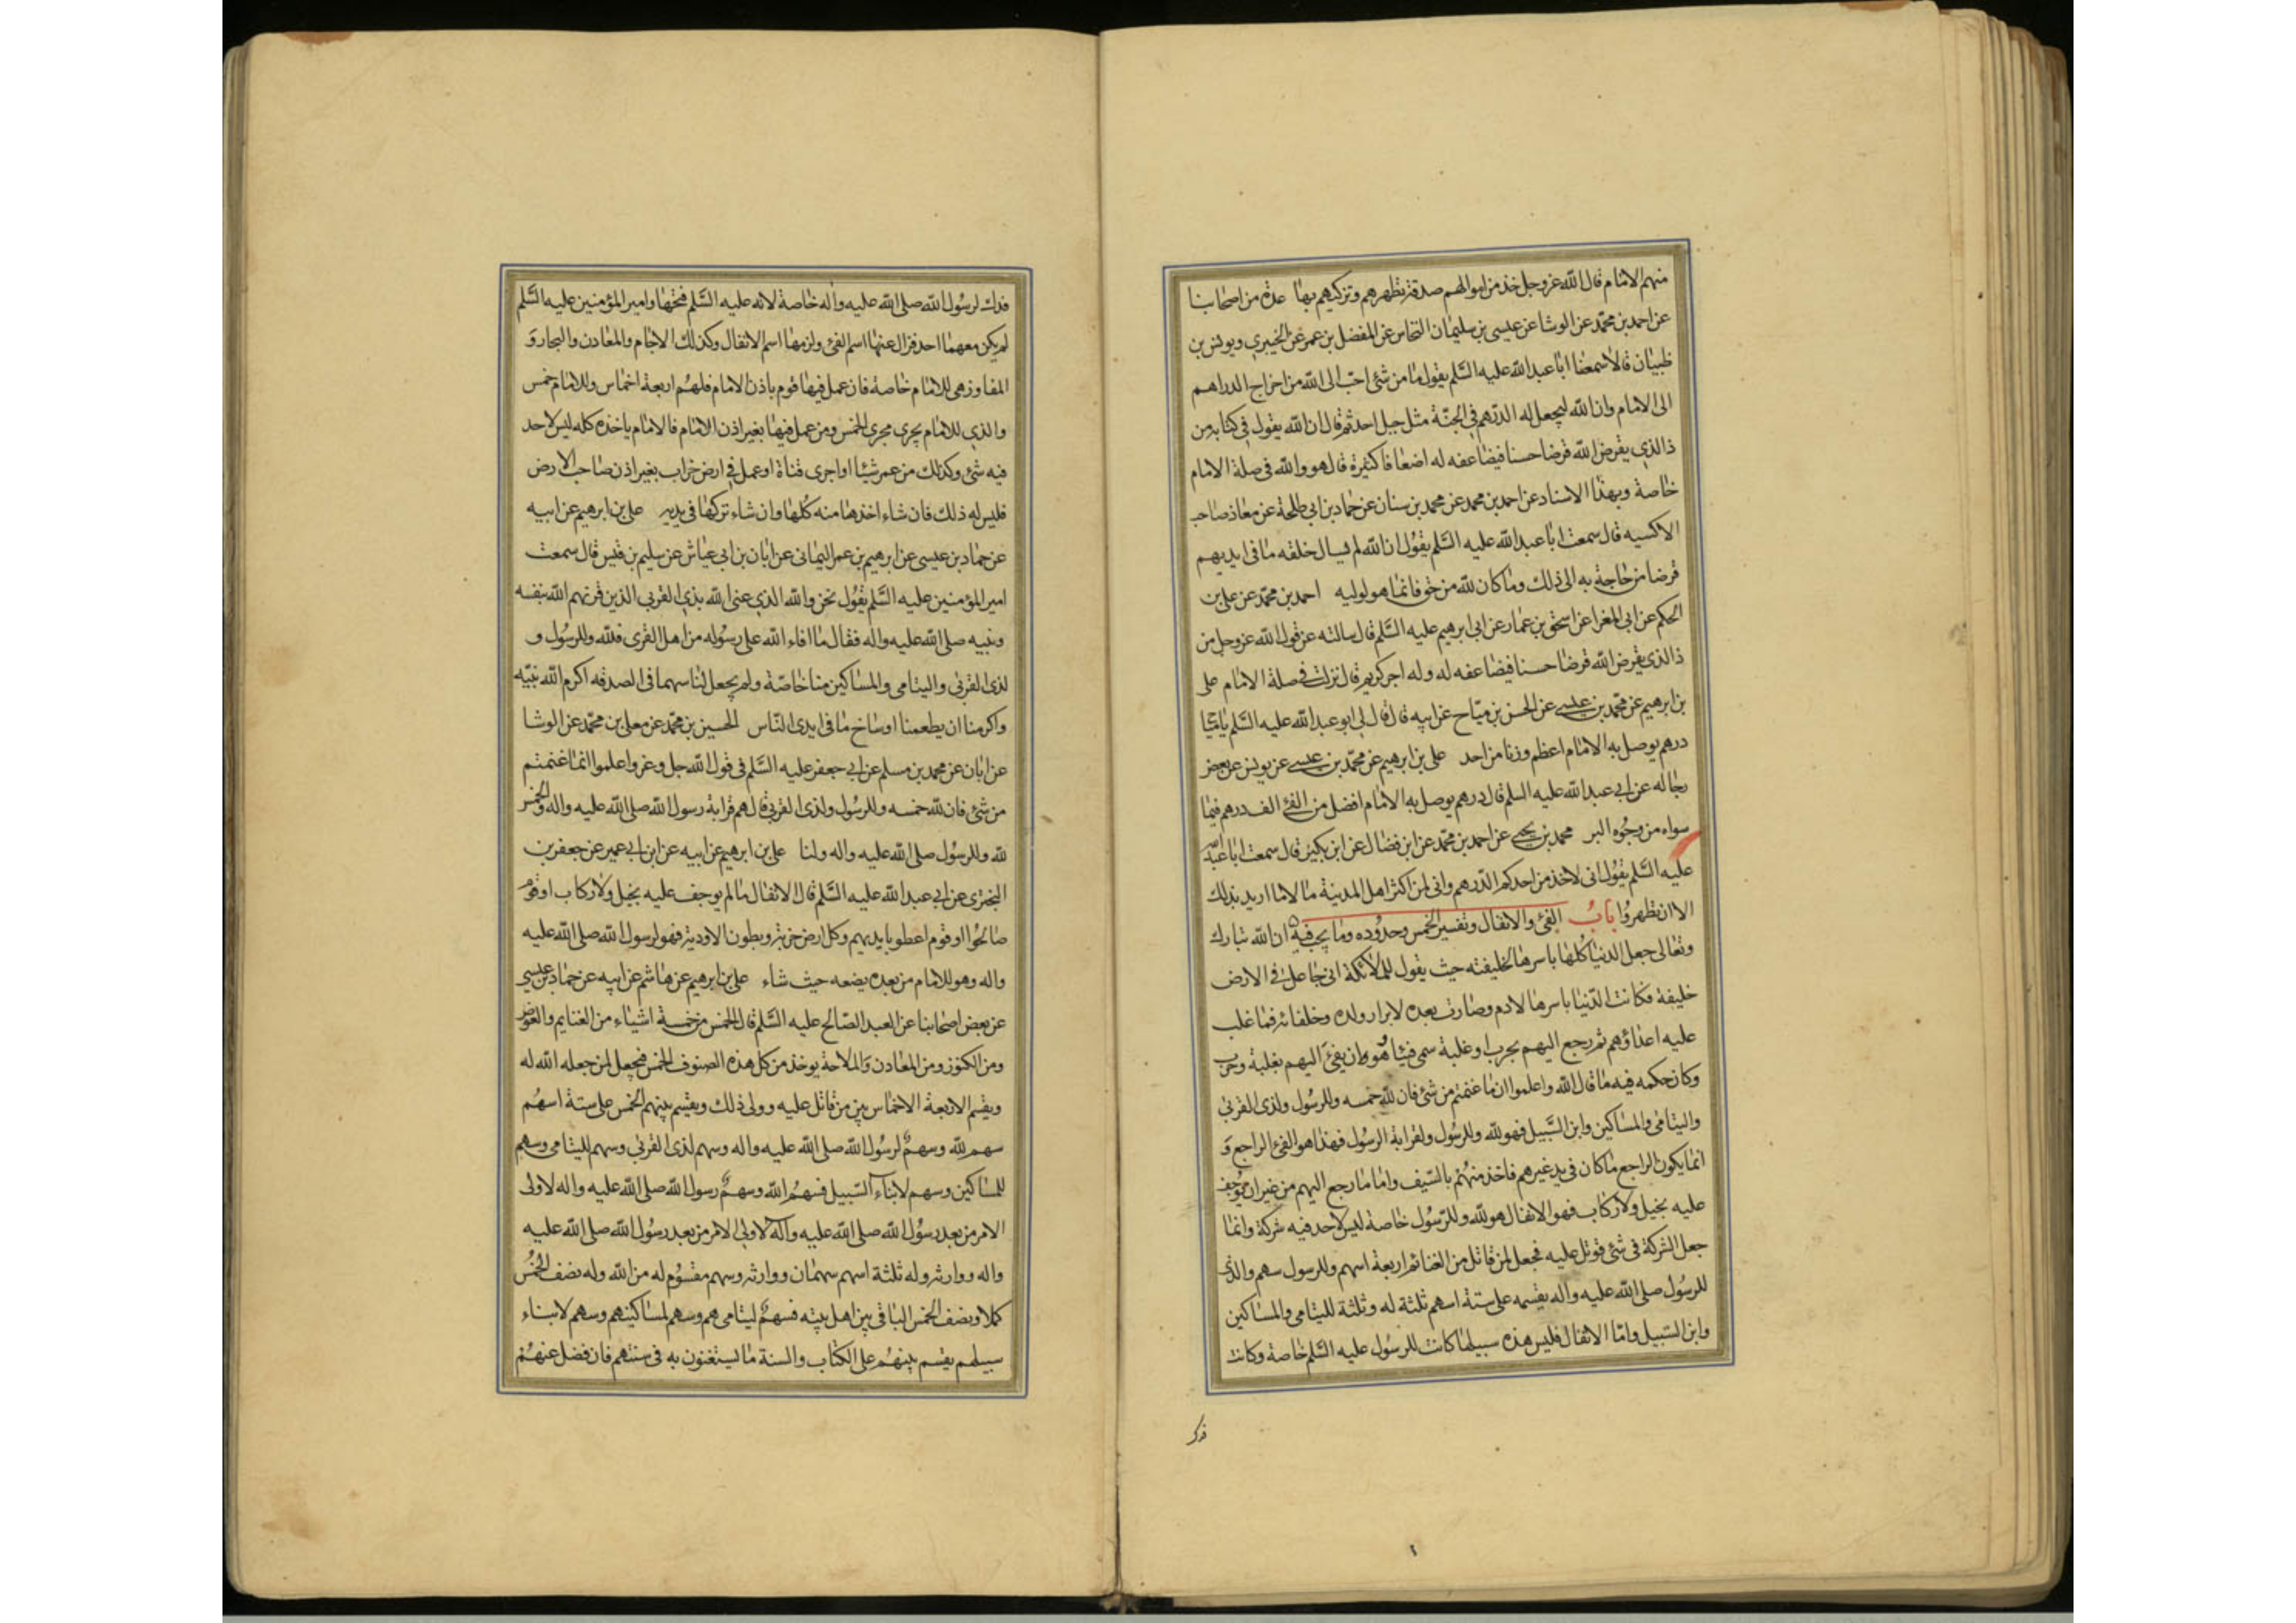 منهم الامام قال الله عز وجل خذ من اموالهم صدقة تطهرهم وتزكيهم بها عدة من اصحابنا
عن احمد بن محمد عن الوشا عن عيسى بن سليمان النحاس عن المفضل بن عمر عن الخيبري ويونس بن
ظبيان قالا سمعنا ابا عبد الله عليه السلم يقول ما من شئ احب الى الله من اخراج الدراهم
الى الامام وان الله ليجعل له الدرهم في الجنة مثل جبل احد ثم قال ان الله يقول في كتابه من
ذا الذي يقرض الله قرضا حسنا فيضاعفه له اضعافا كثيرة قال هو والله في صلة الامام
خاصة وبهذا الاسناد عن احمد بن محمد عن محمد بن سنان عن حماد بن ابي طلحة عن معاذ صاحب
الاكسيه قال سمعت ابا عبد الله عليه السلم يقول ان الله لم يسال خلقه ما في ايديهم
قرضا من حاجة به الى ذلك وما كان لله من حق فانما هو لوليه احمد بن محمد عن علي بن
الحكم عن ابي المغرا عن اسحق بن عمار عن ابي ابرهيم عليه السلم قال سالته عن قول الله عز وجل من
ذا الذي يقرض الله قرضا حسنا فيضاعفه له وله اجر كريم قال نزلت في صلة الامام على
بن ابرهيم عن محمد بن عيسى عن الحسن بن مياح عن ابيه قال قال لي ابو عبد الله عليه السلم يا مياح
درهم يوصل به الامام اعظم وزنا من احد علي بن ابرهيم عن محمد بن عيسى عن يونس عن بعض
رجاله عن ابي عبد الله عليه السلم قال درهم يوصل به الامام افضل من الفي الف درهم فيما
سواه من وجوه البر محمد بن يحيى عن احمد بن محمد عن ابن فضال عن ابن بكير قال سمعت ابا عبد الله
عليه السلم يقول اني لاخذ من احدكم الدرهم واني لمن اكثر اهل المدينة مالا ما اريد بذلك
الا ان تطهروا باب الفئ والانفال وتفسير الخمس وحدوده وما يجب فيه ان الله تبارك
وتعالى جعل الدنيا كلها باسرها لخليفته حيث يقول للملائكة اني جاعل في الارض
خليفة فكانت الدنيا باسرها لادم وصارت بعده لابرار ولده وخلفائه فما غلب
عليه اعداؤهم ثم رجع اليهم بحرب او غلبة سمى فيئا هو ان يفئ اليهم بغلبة وحرب
وكان حكمه فيه ما قال الله واعلموا ان ما غنمتم من شئ فان لله خمسه وللرسول ولذى القربى
واليتامى والمساكين وابن السبيل فهو لله وللرسول ولقرابة الرسول فهذا هو الفئ الراجع و
انما يكون الراجع ما كان في يد غيرهم فاخذ منهم بالسيف واما ما رجع اليهم من غير ان يوجف
عليه بخيل ولا ركاب فهو الانفال هو لله وللرسول خاصة ليس لاحد فيه شركة وانما
جعل الشركة في شئ قوتل عليه فجعل لمن قاتل من الغنائم اربعة اسهم وللرسول سهم والذى
للرسول صلى الله عليه واله يقسمه على ستة اسهم ثلثة له وثلثة لليتامى والمساكين
وابن السبيل واما الانفال فليس هذه سبيلها كانت للرسول عليه السلم خاصة وكانت
فدك
فدك لرسول الله صلى الله عليه واله خاصة لانه عليه السلم فتحها وامير المؤمنين عليه السلم
لم يكن معهما احد فزال عنها اسم الفئ ولزمها اسم الانفال وكذلك الاجام والمعادن والبحار و
المفاوز هي للامام خاصة فان عمل فيها قوم باذن الامام فلهم اربعة اخماس وللامام خمس
والذي للامام يجرى مجرى الخمس ومن عمل فيها بغير اذن الامام فالامام ياخذه كله ليس لاحد
فيه شئ وكذلك من عمر شيئا او اجرى قناة او عمل في ارض خراب بغير اذن صاحب الارض
فليس له ذلك فان شاء اخذها منه كلها وان شاء تركها في يديه علي بن ابرهيم عن ابيه
عن حماد بن عيسى عن ابرهيم بن عمر اليماني عن ابان بن ابي عياش عن سليم بن قيس قال سمعت
امير المؤمنين عليه السلم يقول نحن والله الذي عنى الله بذي القربى الذين قرنهم الله بنفسه
ونبيه صلى الله عليه واله فقال ما افاء الله على رسوله من اهل القرى فلله وللرسول و
لذى القربى واليتامى والمساكين منا خاصة ولم يجعل لنا سهما في الصدقه اكرم الله نبيه
واكرمنا ان يطعمنا اوساخ ما في ايدى الناس الحسين بن محمد عن معلى بن محمد عن الوشا
عن ابان عن محمد بن مسلم عن ابي جعفر عليه السلم في قول الله جل وعز واعلموا انما غنمتم
من شئ فان لله خمسه وللرسول ولذى القربى قال هم قرابة رسول الله صلى الله عليه واله والخمس
لله وللرسول صلى الله عليه واله ولنا علي بن ابرهيم عن ابيه عن ابن ابي عمير عن جعفر بن
البختري عن ابي عبد الله عليه السلم قال الانفال ما لم يوجف عليه بخيل ولا ركاب او قوم
صالحوا او قوم اعطوا بايديهم وكل ارض خربة وبطون الاودية فهو لرسول الله صلى الله عليه
واله وهو للامام من بعده يضعه حيث شاء علي بن ابرهيم عن هاشم عن ابيه عن حماد بن عيسى
عن بعض اصحابنا عن العبد الصالح عليه السلم قال الخمس من خمسة اشياء من الغنايم والغوص
ومن الكنوز ومن المعادن والملاحة يوخذ من كل هذه الصنوف الخمس فيجعل لمن جعله الله له
ويقسم الاربعة الاخماس بين من قاتل عليه وولى ذلك ويقسم بينهم الخمس على ستة اسهم
سهم لله وسهم لرسول الله صلى الله عليه واله وسهم لذى القربى وسهم لليتامى وسهم
للمساكين وسهم لابناء السبيل فسهم الله وسهم رسول الله صلى الله عليه واله لاولى
الامر من بعد رسول الله صلى الله عليه واله لاولى الامر من بعد رسول الله صلى الله عليه
واله ووارثه وله ثلثة اسهم سهمان ووارثه وسهم مقسوم له من الله وله نصف الخمس
كملا ونصف الخمس الباقي بين اهل بيته فسهم ليتامى هم وسهم لمساكينهم وسهم لابناء
سبيلهم يقسم بينهم على الكتاب والسنة ما يستغنون به في سنتهم فان فضل عنهم